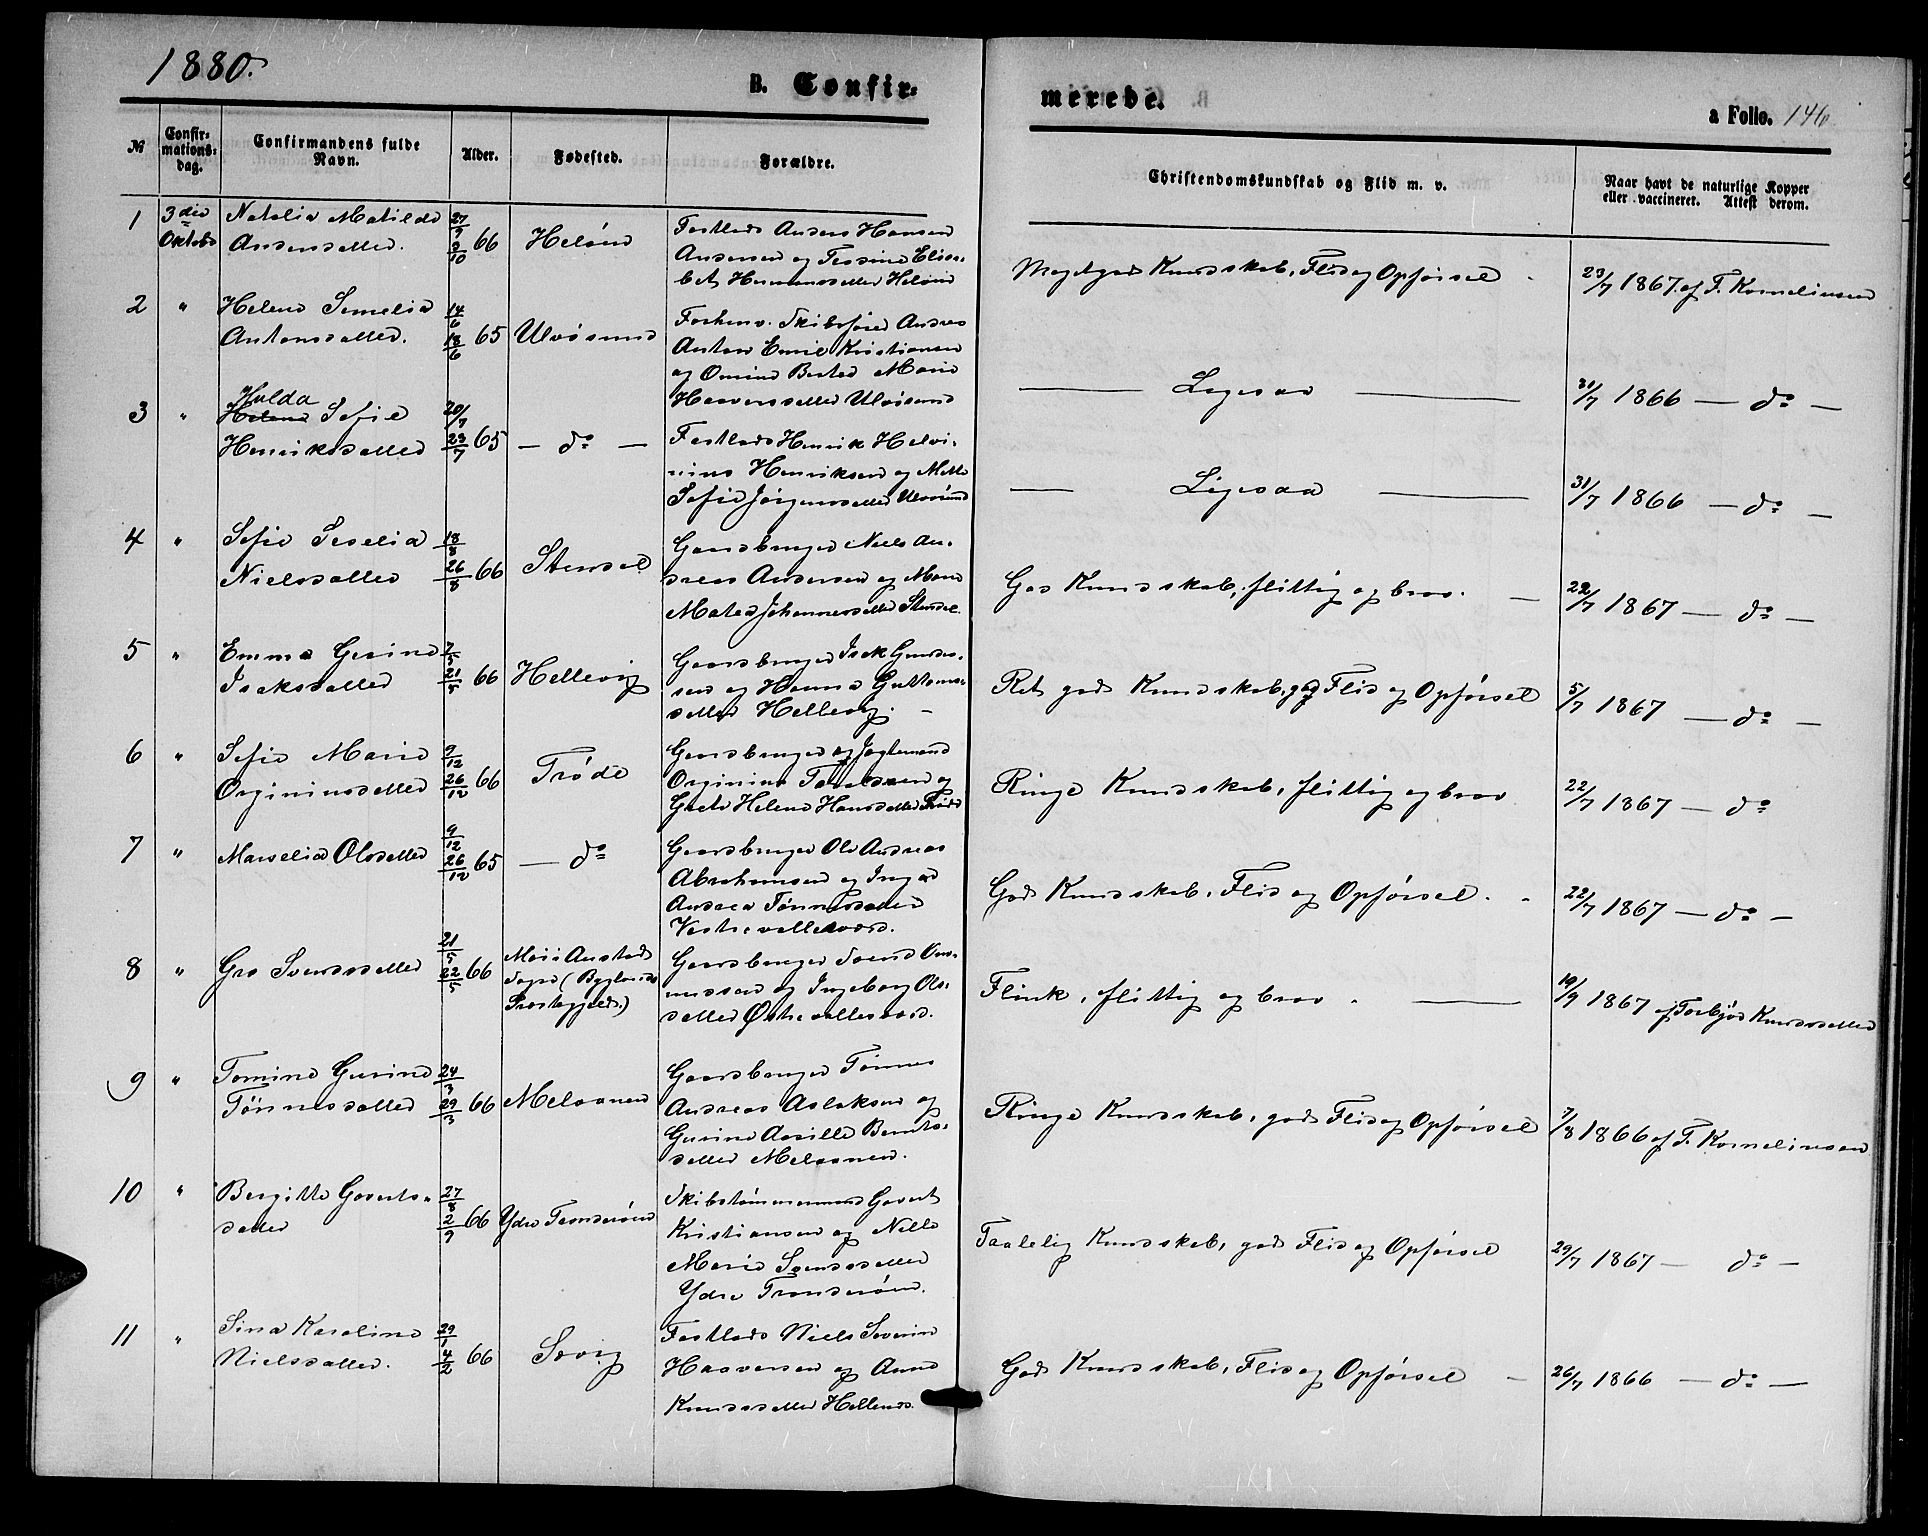 1880.
B. Confir-
merede.
a Folio. 146.
№
Confir-
mations-
dag.
Confirmandens fulde
Navn.
Alder.
Fødested.
Forældre.
Christendomskundskab og Flid m. v.
Naar havt de naturlige Kopper
eller vaccineret. Attest derom.
1
3die
Oktobr
Natalia Matilde
Andersdatter.
27/9
9/10 66
Helöen
Fostleds Anders Hansen
Andersen og Elisa-
bet Hermansdatter Helöen
Megetgod Kundskab, Flid og Opförsel
23/7 1867. af T. Korneliusen
2
"
Helene Semelia
Antonsdatter.
14/6
18/6 65
Ulvösund
Forhenv. Skibsförer Andreas
Anton Emil Kristiansen
og Marie
Haaversdatter Ulvösund
— Ligesaa —
31/7 1866 — do —
3
"
Hulda
Helene Sofie
Henriksdatter
20/7
23/7 65
— do —
Henrik Helvi-
nius Henriksen og Mette
Sofie Jörgensdatter Ulvösund
— Ligesaa —
31/7 1866 — do —
4
"
Sofie Seselia
Nielsdatter
18/8
26/8 66
Stensel
Gaardbruger Niels An-
dreas Andersen og
Johannesdatter Stensel
God Kundskab, flittig og brav. —
22/7 1867 — do —
5
"
Emma Gesine
Isaksdatter
7/5
21/5 66
Hellevig
Gaardbruger Isak Gunder-
sen og Hanna Guttorms-
datter Hellevig. —
Ret god Kundskab, god Flid og Opförsel
5/7 1867 — do —
6
"
Sofie Marie
Orginiusdatter
9/12
26/12 66
Trøde
Gaardbruger og
Orginius og
Grete Helene Hansdatter Trøde
Ringe Kundskab, flittig og brav
22/7 1867 — do
7
"
Marselia Olsdatter
9/12
26/12 65
— do
Gaardbruger Ole Andreas
Abrahamsen og Inger
Andrea Tönnesdatter
Vestre vallesverd.
God Kundskab, Flid og Opførsel.
22/7 1867 — do —
8
"
Gro Svendsdatter
21/5
22/5 66
Moi i Austads
Sogn (Byglands
Præstegjeld.)
Gaardbruger Svend Om-
undsen og Ingeborg Ols-
datter Østre vallesverd.
Flink, flittig og brav. —
19/9 1867 af Torbjör Knudsdatter
9
"
Tomine Gurine
Tönnesdatter
24/3
29/3 66
Meløanen
Gaardbruger Tønnes
Andreas Aslaksen og
Gurine Bernts-
datter Meløanen.
Ringe Kundskab, god Flid og Opförsel
7/8 1866 af T. Kornelinsen
10
"
Bergitte Goverts-
datter
27/8
2/9 66
Ydre Tronderöen
Skibstömmermand Govert
Kristiansen og Nille
Marie Svendsdatter
Ydre Tronderöen.
Taalelig Kundskab, god Flid og Opförsel
29/7 1867 — do —
11
"
Sina Karoline
Nielsdatter.
29/1
4/2 66
Sævig
Niels Severin
Haaversen og Anne
Knudsdatter
God Kundskab, Flid og Opförsel —
26/7 1866 — do —